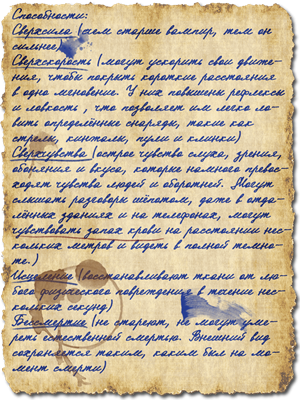 Способности:
Сверхсила (чем старше вампир, тем он
сильнее)
Сверхскорость (могут ускорить свои движе-
ния, чтобы покрыть короткие расстояния
в одно мгновение. У них повышены рефлексы
и ловкость , что позволяет им легко ло-
вить определённые снаряды, такие как
стрелы, кинжалы, пули и клинки)
Сверхчувства (острое чувство слуха, зрения,
обоняния и вкуса, которые намного превос-
ходят чувства людей и оборотней. Могут
слышать разговоры шёпотом, даже в отда-
лённых зданиях и на телефонах, могут
чувствовать запах крови на расстоянии нес-
кольких метров и видеть в полной темно-
те.)
Исцеление (восстанавливают ткани от лю-
бого физического повреждения в течении нес-
кольких секунд)
Бессмертие (не стареют, не могут уме-
реть естественной смертью. Внешний вид
сохраняется таким, каким был на мо-
мент смерти)